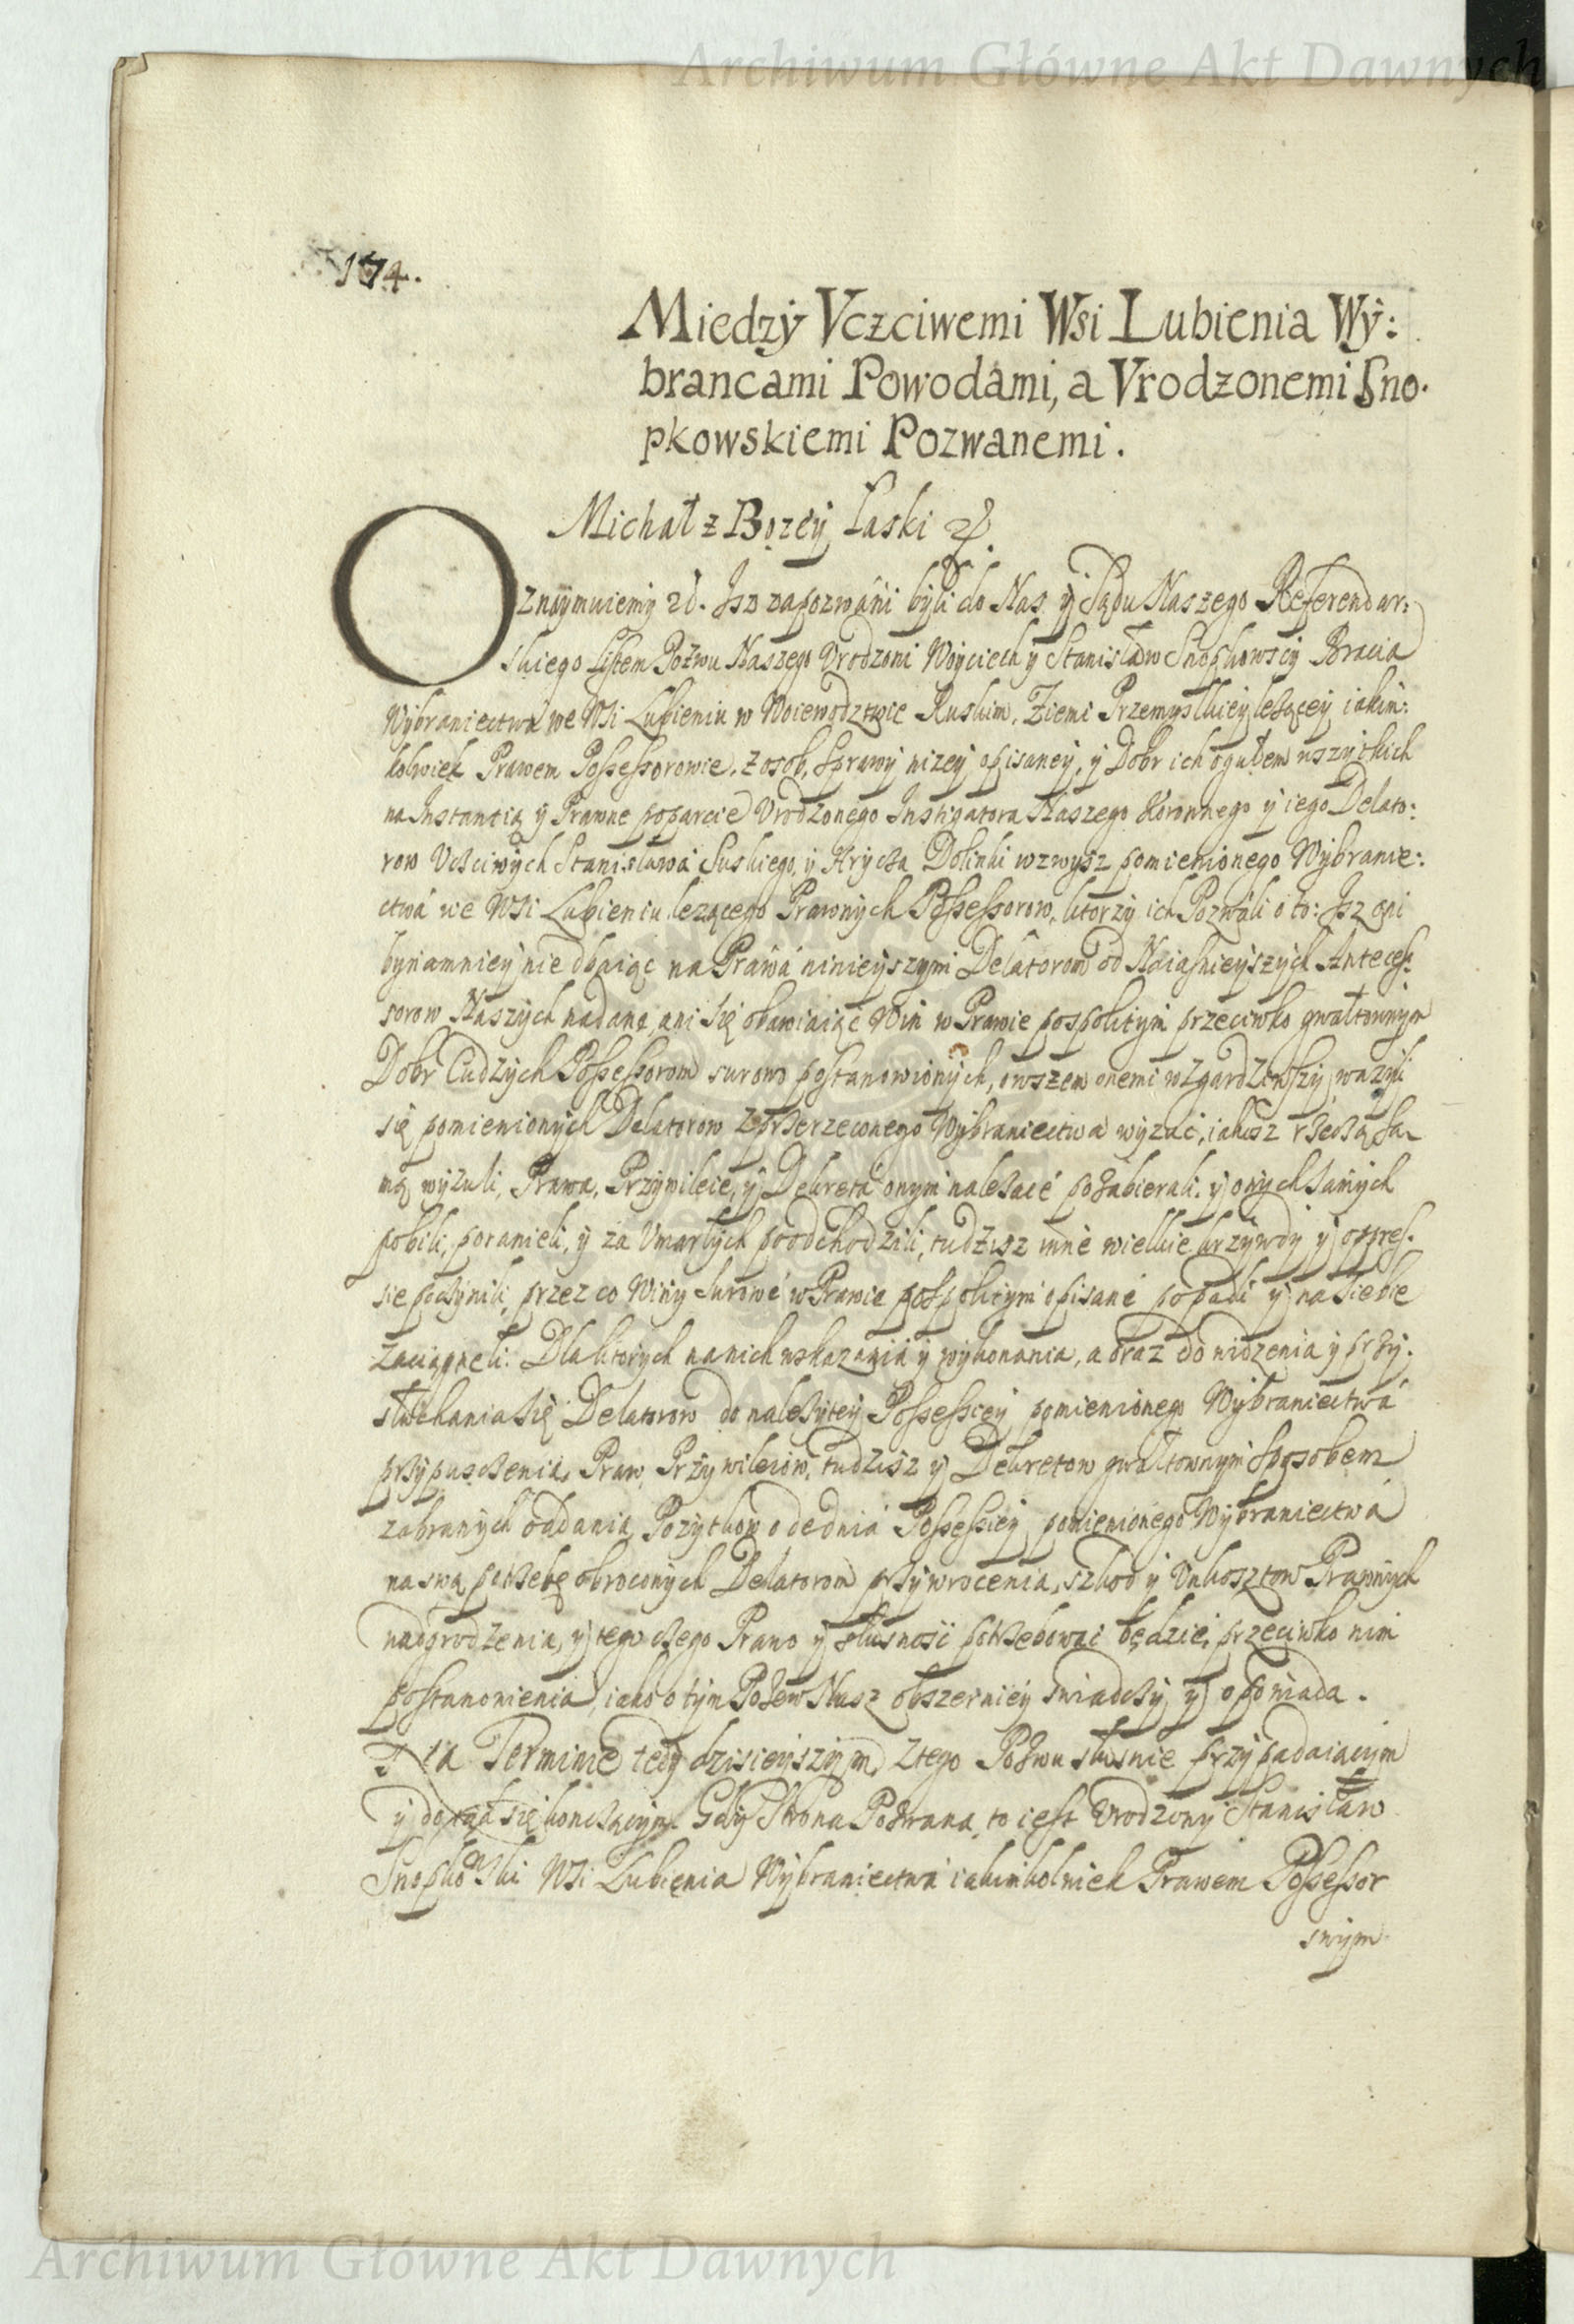 Archiwum Główne Akt Dawnych
174.
Miedzÿ Vczciwemi Wsi Lubienia Wÿ:
brancami Powodami, a Vrodzonemi Sno.
pkowskiemi Pozwanemi.
Michał z Bozeÿ Łaski
Oznaÿmuiemÿ Isz zapozwani bÿli do Nas ÿ Sądu Naszego Referendar:
skiego Listem Pozwu Naszego Vrodzoni Woÿciech ÿ Stanisław Snopkowscÿ Bracia
Wÿbraniectwa we Wsi Lubieniu w Woiewodztwie Ruskim, Ziemi Przemÿslkieÿ leżąceÿ iakim:
kolwiek Prawem Possessorowie, z osob, Sprawÿ nizeÿ opisaneÿ, ÿ Dobr ich ogułem wszÿtkich
na Instantią ÿ Prawne poparcie Vrodzonego Instigatora Naszego Koronnego ÿ iego Delato:
row Vcsciwÿch Stanisława Suskiego, ÿ Hrÿcka Dolinki wzwÿsz pomienionego Wÿbranie:
ctwá we Wsi Lubieniu lezącego Prawnÿch Possessorow, ktorzÿ ich Pozwali o to: Isz oni
bÿnamnieÿ nie dbaiąc na Prawá ninieÿszÿm Delatorom od Naiasnieÿszÿch Antecess:
sorow Naszÿch nadane, ani się obawiaiąc Win w Prawie pospolitÿm przeciwko gwałtownÿm
Dobr Cudzÿch Possessorom surowo postanowionÿch, owszem onemi wzgardziwszÿ, wazÿli
się pomienionÿch Delatorow z przerzeconego Wÿbraniectwa wÿzuć, iakosz rzeczą sa-
mą wÿzuli, Prawa, Przÿwileie, ÿ Dekreta onÿm należące pozabierali, ÿ onÿch samÿch
pobili, poranieli, ÿ za Vmarłÿch poodchodzili, tudzisz inne wielkie krzÿwdÿ ÿ oppres.
sie poczÿnili, przez co Winÿ surowe w Prawie pospolitÿm opisane popadli ÿ na siebie
zaciągneli: Dla ktorÿch na nich wskazania ÿ wÿkonania, a oraz do widzenia ÿ przÿ.
słuchania się Delatorow do należÿteÿ Possessieÿ pomienionego Wÿbraniectwá
przÿpusczenia, Praw, Przÿwileiow, tudzisz ÿ Dekretow gwałtownÿm Sposobem
zabranÿch oddania, Pozÿtkow ode dnia Possessieÿ pomienionego Wÿbraniectwá
na swą potrzebę obroconÿch Delatorom przÿwrocenia, szkod ÿ Vnkosztow Prawnÿch
nadgrodzenia, ÿ tego czego Prawo ÿ słusnosc potrzebować będzie, przeciwko nim
postanowienia, iako o tÿm Pozew Nasz obszernieÿ swiadczÿ ÿ opowiada.
Na Terminie tedÿ dzisieÿszÿm, z tego Pozwu słusnie przÿpadaiącÿm
ÿ dotąd się konczącÿm Gdÿ Strona Pozwana, to iest Vrodzonÿ Stanisław
Snopkowski Wsi Lubienia Wÿbraniectwá iakimkolwiek Prawem Possessor
swÿm
Archiwum Główne Akt Dawnych